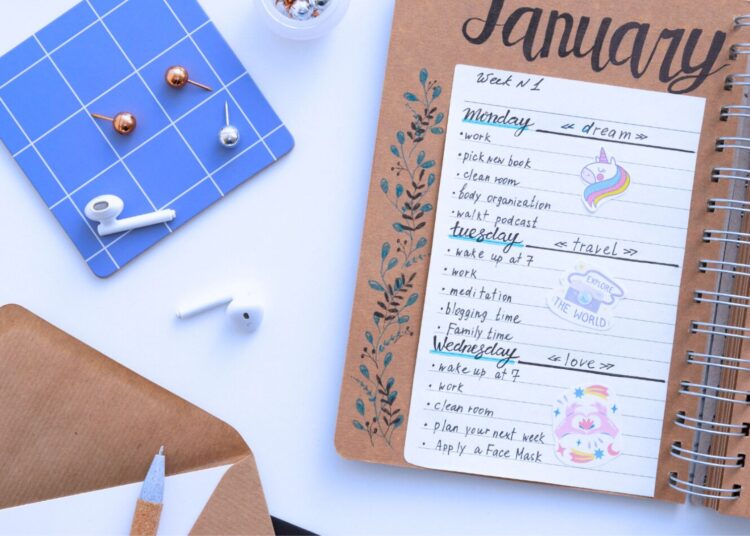 January
Week N1
Monday « dream »
• work
• pick new book
• clean room
• body organization
• walkt podcast
tuesday « travel »
• wake up at 7
• work
EXPLORE
• meditation
THE WORLD
• blogging time
• Family time
Wednesday « love »
• wake up at 7
• work
• clean room
• plan your next week
• Apply a Face Mask